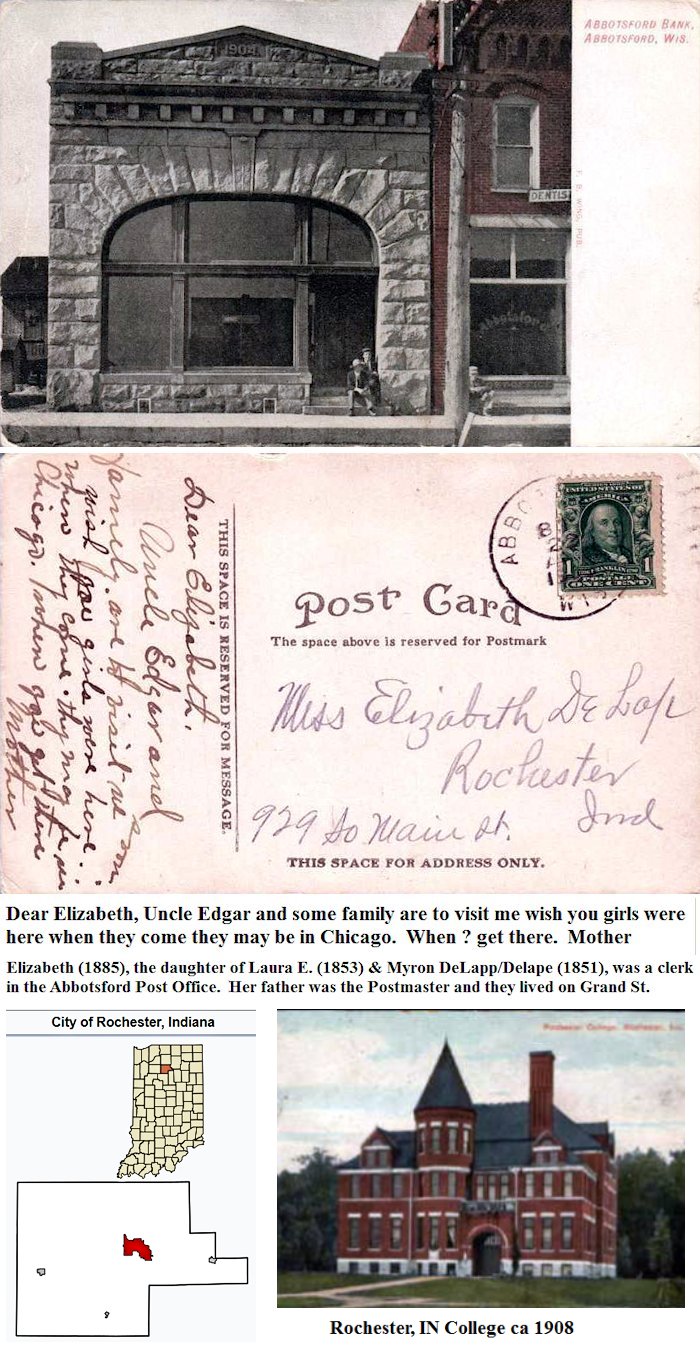 ABBOTSFORD BANK,
ABBOTSFORD, WIS.
1904
DENTIST
Abbotsford
F. B. WING, PUB.
Dear Elizabeth.
Uncle Edgar and
family are to visit us soon
wish you girls were here
when they come. they may be in
Chicago. when you get there
Mother
THIS SPACE IS RESERVED FOR MESSAGE.
ABBO
UNITED STATES OF
AMERICA
1 FRANKLIN 1
POSTAGE
ONE CENT
WIS
Post Card
The space above is reserved for Postmark
Miss Elizabeth De Lap
Rochester
929 So Main St. Ind
THIS SPACE FOR ADDRESS ONLY.
Dear Elizabeth, Uncle Edgar and some family are to visit me wish you girls were
here when they come they may be in Chicago. When ? get there. Mother
Elizabeth (1885), the daughter of Laura E. (1853) & Myron DeLapp/Delape (1851), was a clerk
in the Abbotsford Post Office. Her father was the Postmaster and they lived on Grand St.
City of Rochester, Indiana
Rochester College, Rochester, Ind.
Rochester, IN College ca 1908